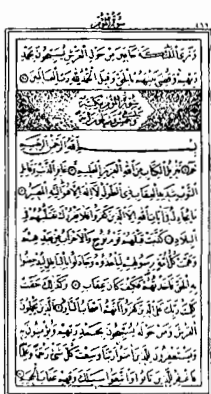 وَتَرَى الْمَلَائِكَةَ حَافِّينَ مِنْ حَوْلِ الْعَرْشِ يُسَبِّحُونَ بِحَمْدِ
رَبِّهِمْ وَقُضِيَ بَيْنَهُمْ بِالْحَقِّ وَقِيلَ الْحَمْدُ لِلَّهِ رَبِّ الْعَالَمِينَ
بِسْمِ اللَّهِ الرَّحْمَنِ الرَّحِيمِ
حم تَنْزِيلُ الْكِتَابِ مِنَ اللَّهِ الْعَزِيزِ الْعَلِيمِ غَافِرِ الذَّنْبِ وَقَابِلِ
التَّوْبِ شَدِيدِ الْعِقَابِ ذِي الطَّوْلِ لَا إِلَهَ إِلَّا هُوَ إِلَيْهِ الْمَصِيرُ
مَا يُجَادِلُ فِي آيَاتِ اللَّهِ إِلَّا الَّذِينَ كَفَرُوا فَلَا يَغْرُرْكَ تَقَلُّبُهُمْ فِي
الْبِلَادِ كَذَّبَتْ قَبْلَهُمْ قَوْمُ نُوحٍ وَالْأَحْزَابُ مِنْ بَعْدِهِمْ
وَهَمَّتْ كُلُّ أُمَّةٍ بِرَسُولِهِمْ لِيَأْخُذُوهُ وَجَادَلُوا بِالْبَاطِلِ لِيُدْحِضُوا
بِهِ الْحَقَّ فَأَخَذْتُهُمْ فَكَيْفَ كَانَ عِقَابِ وَكَذَلِكَ حَقَّتْ
كَلِمَتُ رَبِّكَ عَلَى الَّذِينَ كَفَرُوا أَنَّهُمْ أَصْحَابُ النَّارِ الَّذِينَ يَحْمِلُونَ
الْعَرْشَ وَمَنْ حَوْلَهُ يُسَبِّحُونَ بِحَمْدِ رَبِّهِمْ وَيُؤْمِنُونَ بِهِ
وَيَسْتَغْفِرُونَ لِلَّذِينَ آمَنُوا رَبَّنَا وَسِعْتَ كُلَّ شَيْءٍ رَحْمَةً وَعِلْمًا
فَاغْفِرْ لِلَّذِينَ تَابُوا وَاتَّبَعُوا سَبِيلَكَ وَقِهِمْ عَذَابَ الْجَحِيمِ